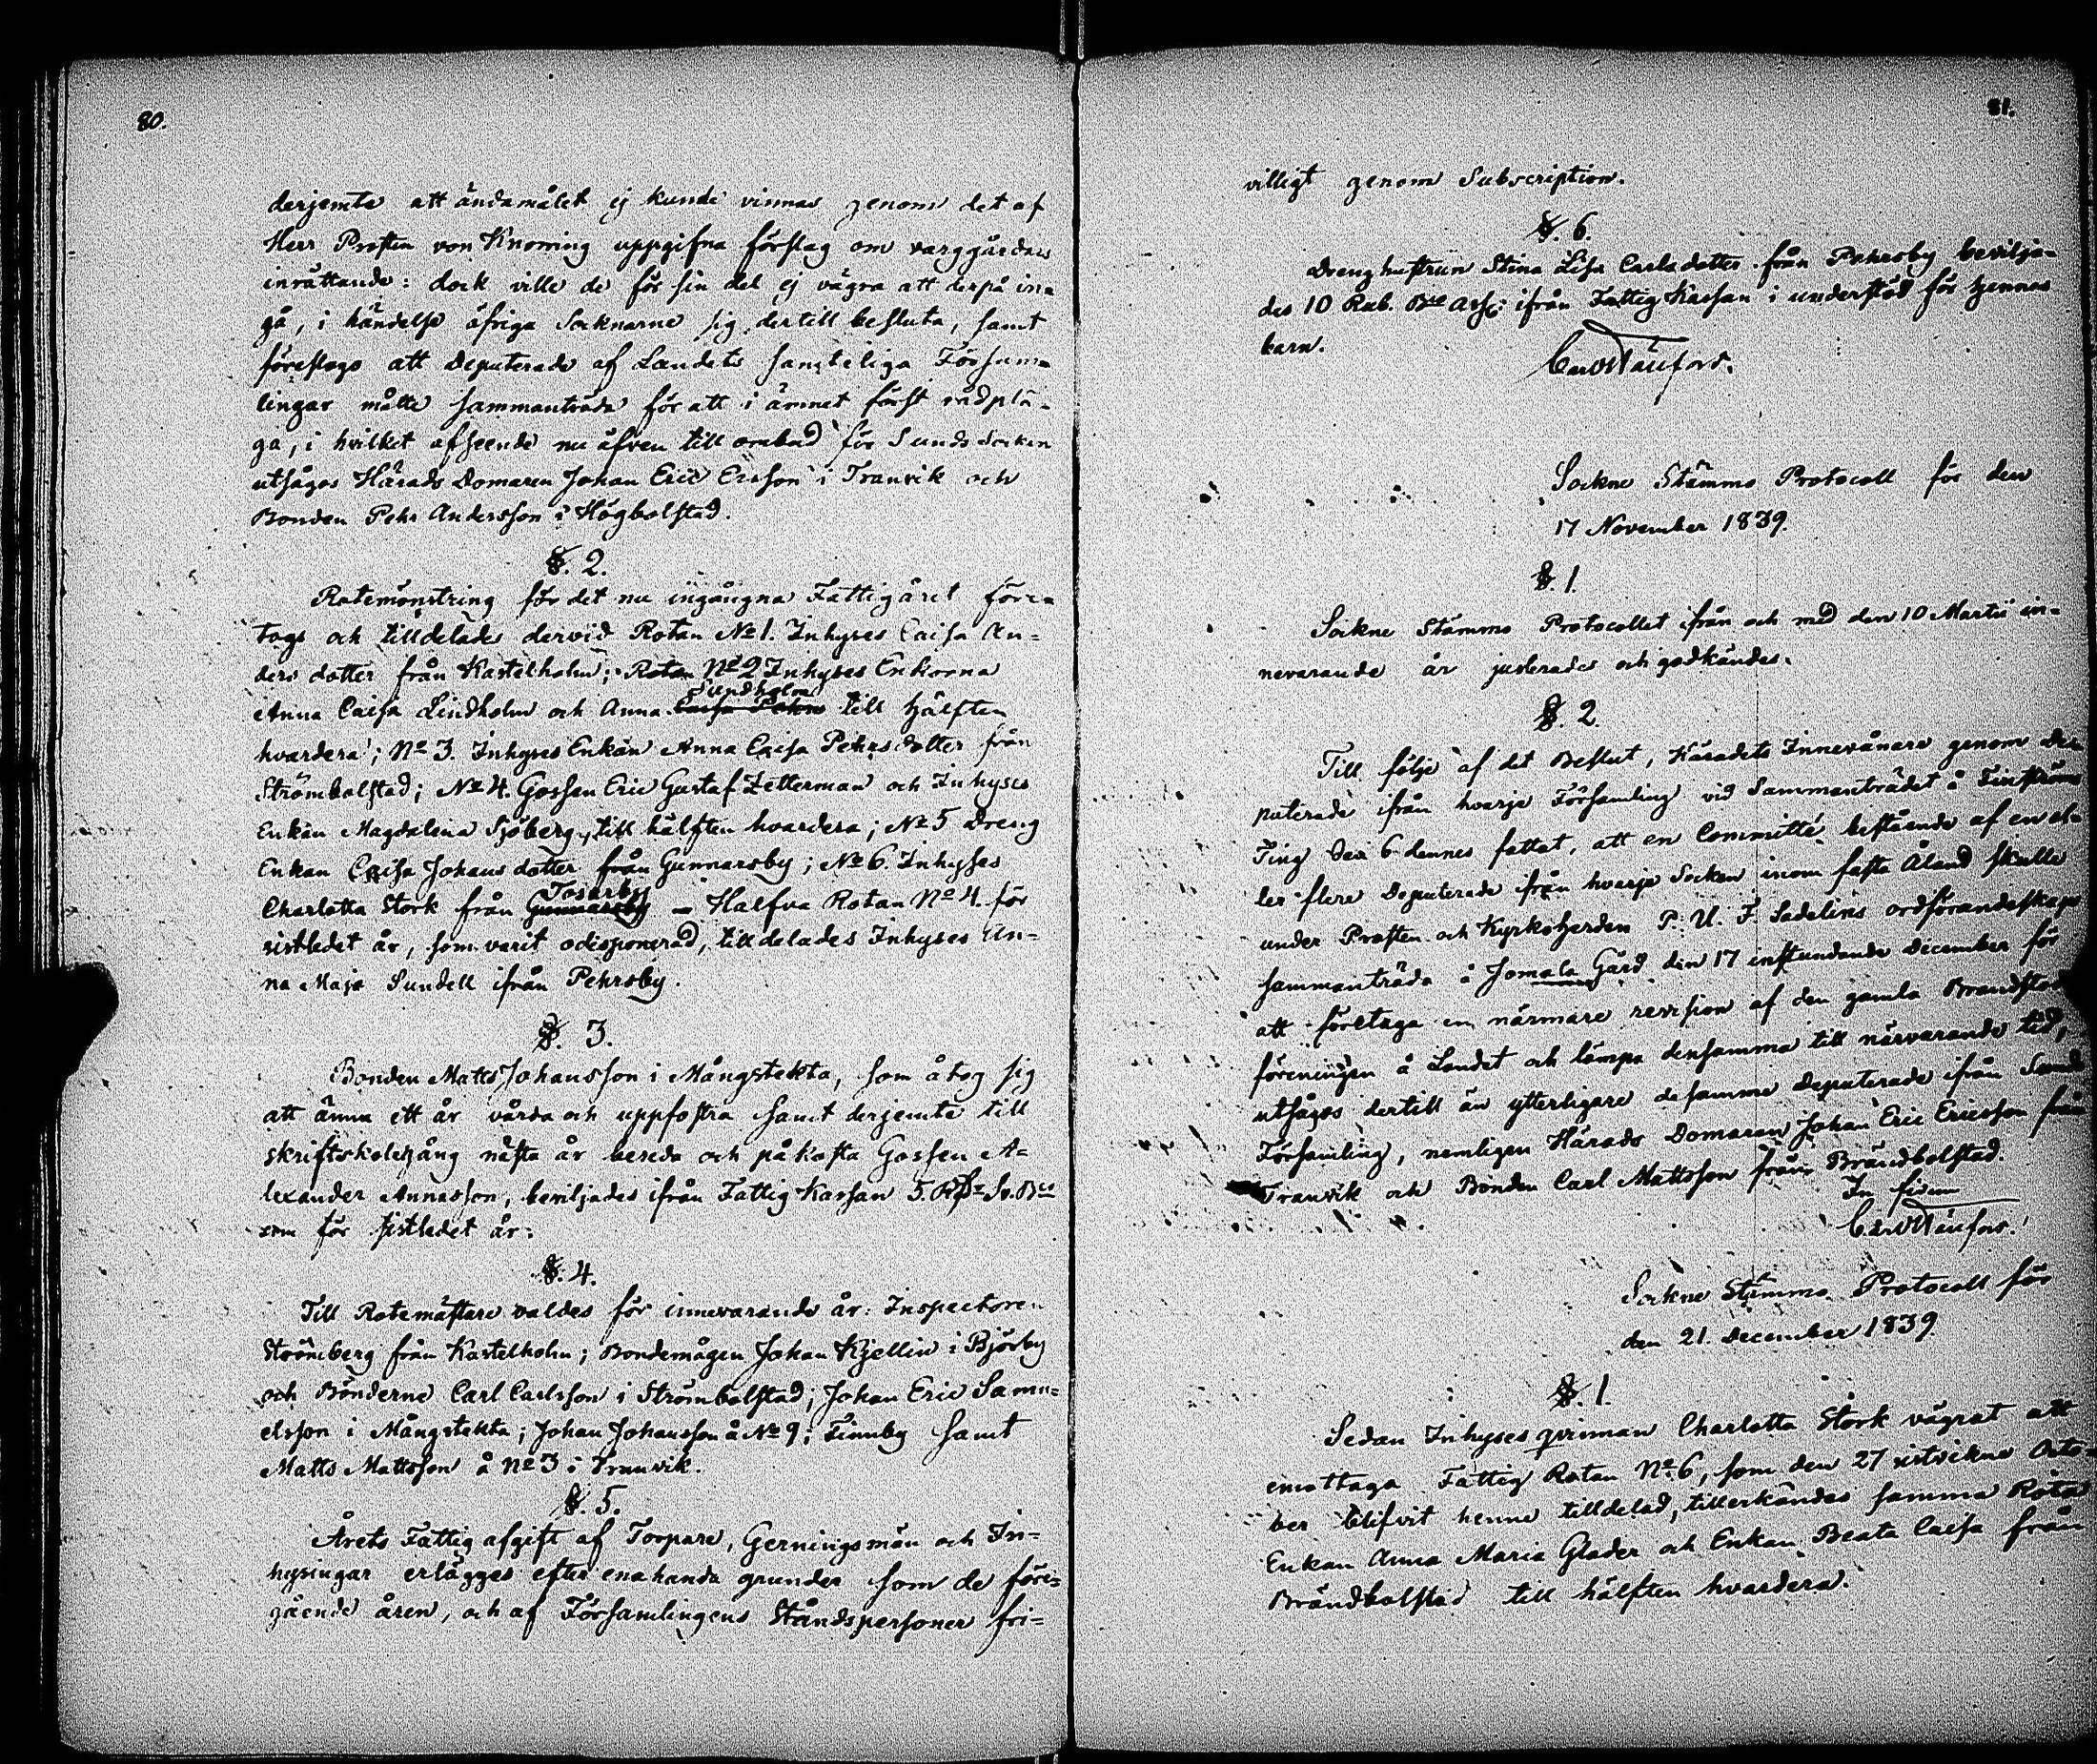 80.
derjemte att ändamålet ej kunde vinnas genom det af
Herr Prosten von Knorring uppgifna förslag om varggårdars
inrättande: dock ville de för sin del ej vägra att derpå in-
gå, i händelse öfriga Socknarne sig dertill besluta, samt
föreslogo att Deputerade af Landets samteliga Försam-
lingar måtte sammanträda för att i ämnet först rådplä-
ga, i hvilket afseende nu äfven till ombud för Sunds Socken
utsågos Härads Domaren Johan Eric Ersson i Tranvik och
Bonden Pehr Andersson i Högbolstad.
§. 2.
Rotemönstring för det nu ingångna Fattigåret före-
togs och tilldelades dervid Rotan No 1. Inhyses Caisa An-
ders dotter från Kastelholm; Rotan No 2 Inhyses Enkorna
Sundholm
Anna Caisa Lindholm och Anna Caisa till hälften
hvardera; No 3. Inhyses Enkan Anna Caisa Pehrsdotter från
Strömbolstad; No 4. Gossen Eric Gustaf Zetterman och Inhyses
Enkan Magdalena Sjöberg, till hälften hvardera; No 5 Dreng
Enkan Caisa Johans dotter från Gunnarsby; No 6. Inhyses
Tosarby
Charlotta Stork från Gunnarsby - Halfva Rotan No 4 för
sistledet år, som varit odisponerad, tilldelades Inhyses An-
na Maja Sundell ifrån Pehrsby.
§. 3.
Bonden Matts Johansson i Mångstekta, som åtog sig
att ännu ett år vårda och uppfostra samt derjemte till
skriftskolegång nästa år bereda och påkosta Gossen A-
lexander Annasson, beviljades ifrån Fattig Kassan 5. Rdr Sv. Bco
som för sistledet år.
§. 4.
Till Rotemästare valdes för innevarande år: Inspectoren
Strömberg från Kastelholm; Bondemågen Johan Kjellin i Björby
och Bönderne Carl Carlsson i Strömbolstad; Johan Eric Samu-
elsson i Mångstekta; Johan Johansson å No 9 i Finnby samt
Matts Mattsson å No 3 i Tranvik.
§. 5.
Årets Fattig afgift af Torpare, Gerningsmän och In-
hysingar erlägges efter enahanda grunder som de före-
gående åren, och af Församlingens Ståndspersoner fri-
81.
villigt genom Subscription.
§. 6.
Dreng hustrun Stina Lisa Carlsdotter från Pehrsby bevilja-
des 10 Rub. Bco Ass: ifrån Fattig Kassan i understöd för hennes
barn.
Sockne Stämmo Protocoll för den
17 November 1839.
§. 1.
Sockne Stämmo Protocollet ifrån och med den 10 Martii in-
nevarande år justerades och godkändes.
§. 2.
Till följe af det Beslut, Häradets Innevånare genom De-
puterade ifrån hvarje Församling vid Sammanträdet å Finströms
Ting den 6 dennes fattat, att en Committé, bestående af en el-
ler flere Deputerade ifrån hvarje Socken inom fasta Åland skulle
under Prosten och Kyrkoherden P. U. F. Sadelins ordförandeskap
sammanträda å Jomala Gård den 17 instundande December för
att företaga en närmare revision af den gamla Brandstods
föreningen å Landet och lämpa densamma till närvarande tid,
utsågos dertill än ytterligare desamme Deputerade ifrån Sunds
Församling, nemligen Härads Domaren Johan Eric Ericsson från
Tranvik och Bonden Carl Mattsson från Brändbolstad.
In fidem
Sockne Stämmo Protocoll för
den 21. December 1839.
§. 1.
Sedan Inhyses qvinnan Charlotta Stork vägrat att
emottaga Fattig Rotan No 6, som den 27 sistvikne Octo-
ber blifvit henne tilldelad, tillerkändes samma Rota
Enkan Anna Maria Glader och Enkan Beata Caisa från
Brändbolstad till hälften hvardera.